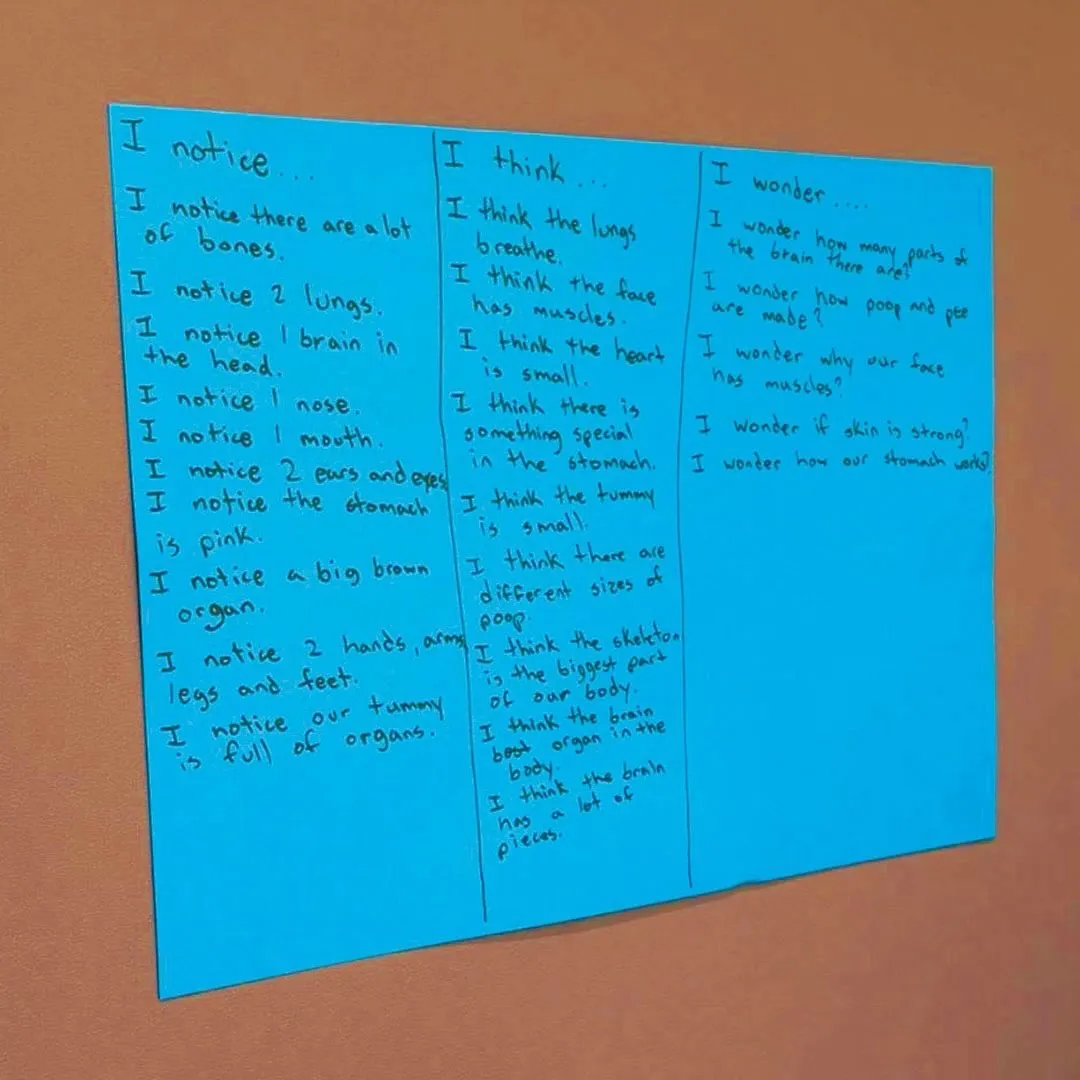 I notice...
I notice there are a lot
of bones.
I notice 2 lungs.
I notice 1 brain in
the head.
I notice 1 nose.
I notice 1 mouth.
I notice 2 ears and eyes.
I notice the stomach
is pink.
I notice a big brown
organ.
I notice 2 hands, arms,
legs and feet.
I notice our tummy
is full of organs.
I think...
I think the lungs
breathe.
I think the face
has muscles.
I think the heart
is small.
I think there is
something special
in the stomach.
I think the tummy
is small.
I think there are
different sizes of
poop.
I think the skeleton
is the biggest part
of our body.
I think the brain
best organ in the
body.
I think the brain
has a lot of
pieces.
I wonder....
I wonder how many parts of
the brain there are?
I wonder how poop and pee
are made?
I wonder why our face
has muscles?
I wonder if skin is strong?
I wonder how our stomach works?